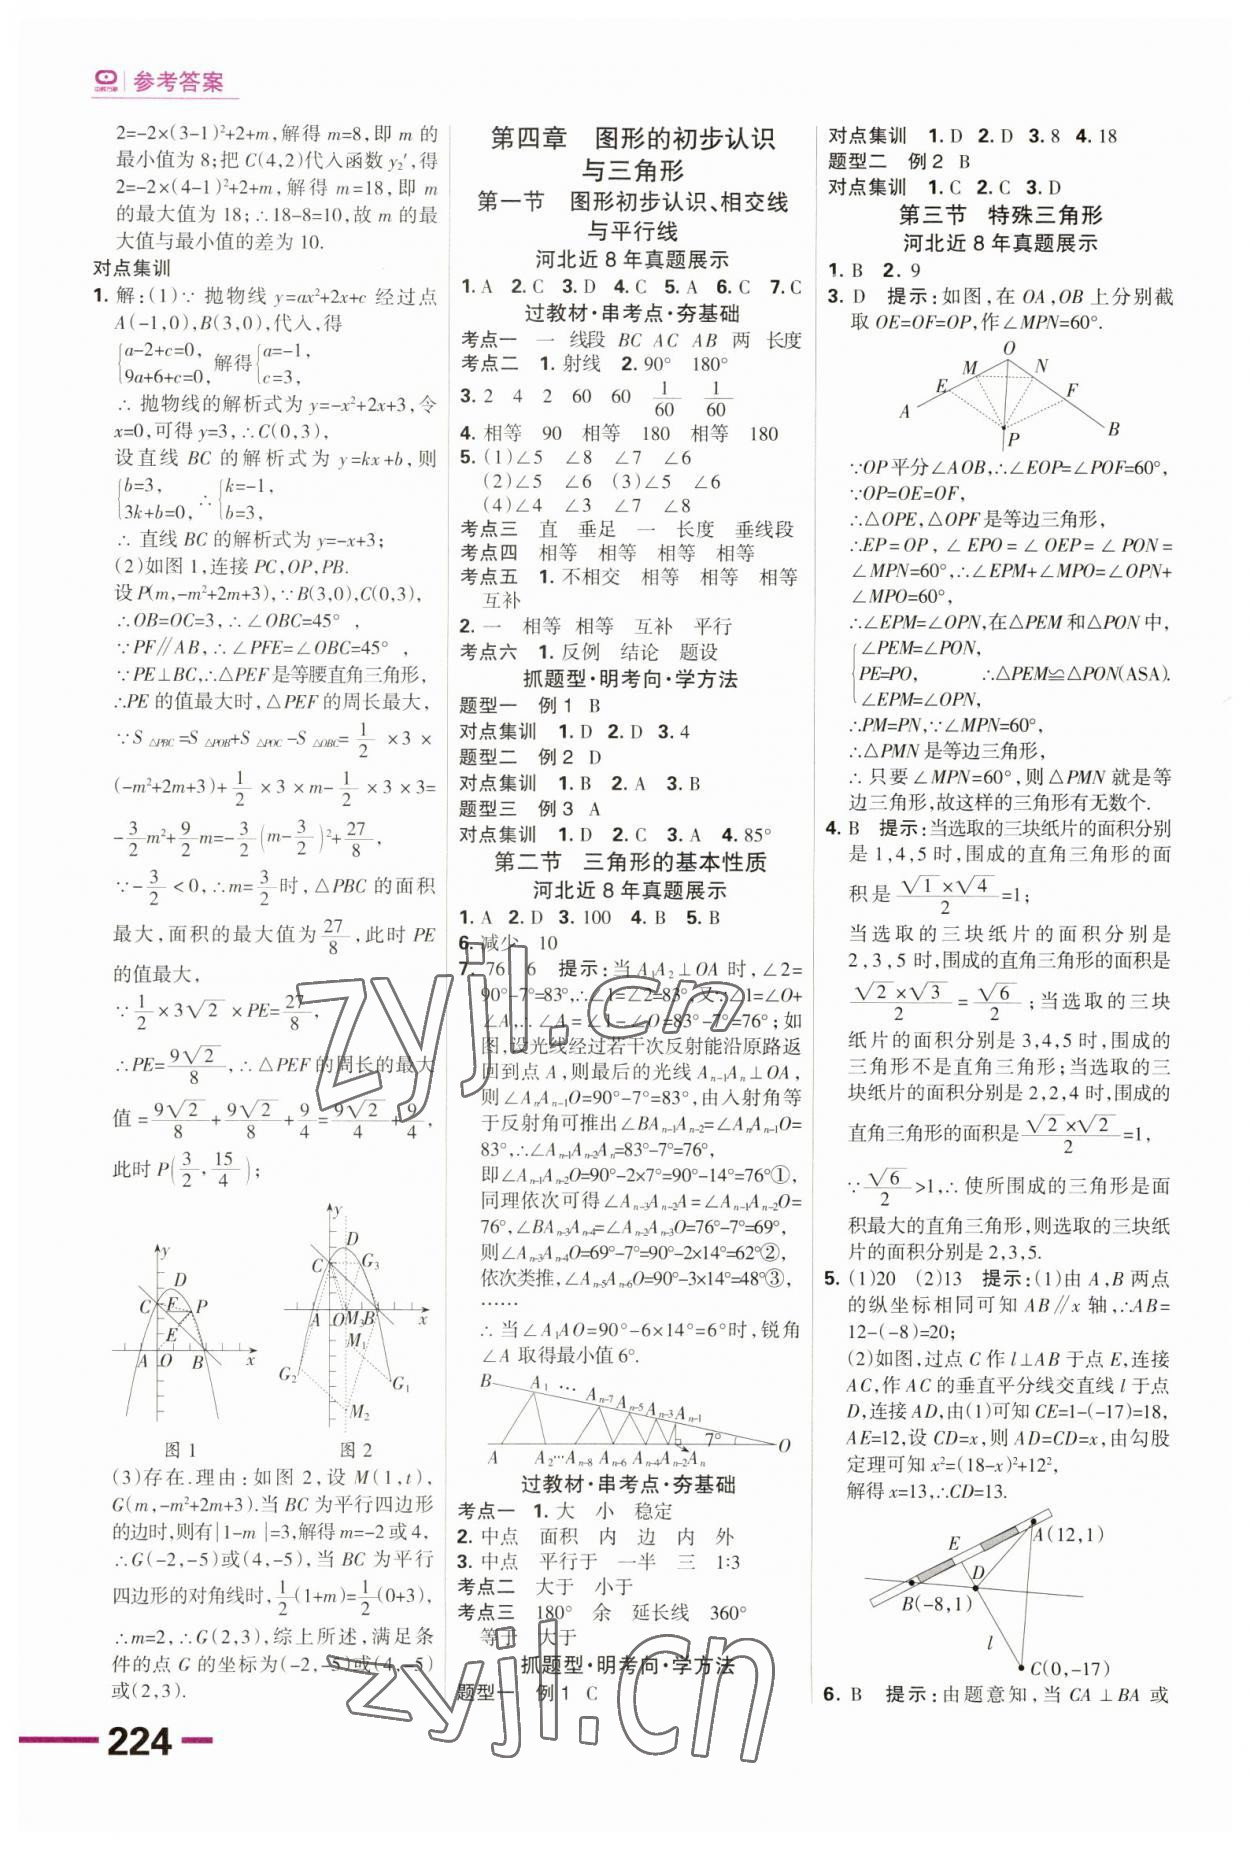 参考答案
2=-2×(3-1)²+2+m,解得m=8,即m的
最小值为8;把C(4,2)代入函数y₂′,得
2=-2×(4-1)²+2+m,解得m=18,即m
的最大值为18;∴18-8=10,故m的最
大值与最小值的差为10.
对点集训
1. 解:(1)∵ 抛物线y=ax²+2x+c经过点
A(-1,0),B(3,0),代入,得
{a-2+c=0, 9a+6+c=0, 解得{a=-1, c=3,
∴ 抛物线的解析式为y=-x²+2x+3,令
x=0,可得y=3,∴C(0,3),
设直线BC的解析式为y=kx+b,则
{b=3, 3k+b=0, ∴{k=-1, b=3,
∴ 直线BC的解析式为y=-x+3;
(2)如图1,连接PC,OP,PB.
设P(m,-m²+2m+3),∵B(3,0),C(0,3),
∴OB=OC=3,∴∠OBC=45°,
∵PF∥AB,∴∠PFE=∠OBC=45°,
∵PE⊥BC,∴△PEF是等腰直角三角形,
∴PE的值最大时,△PEF的周长最大,
∵S△PBC=S△POB+S△POC-S△OBC=1/2×3×
(-m²+2m+3)+1/2×3×m-1/2×3×3=
-3/2m²+9/2m=-3/2(m-3/2)²+27/8,
∵-3/2<0,∴m=3/2时,△PBC的面积
最大,面积的最大值为27/8,此时PE
的值最大,
∵1/2×3√2×PE=27/8,
∴PE=9√2/8,∴△PEF的周长的最大
值=9√2/8+9√2/8+9/4=9√2/4+9/4,
此时P(3/2,15/4);
y D C F P E A O B x
图1
y D C G₃ A O M₃ B x M₁ G₂ G₁ M₂
图2
(3)存在.理由:如图2,设M(1,t),
G(m,-m²+2m+3).当BC为平行四边形
的边时,则有|1-m|=3,解得m=-2或4,
∴G(-2,-5)或(4,-5),当BC为平行
四边形的对角线时,1/2(1+m)=1/2(0+3),
∴m=2,∴G(2,3),综上所述,满足条
件的点G的坐标为(-2,-5)或(4,-5)
或(2,3).
224
第四章 图形的初步认识
与三角形
第一节 图形初步认识、相交线
与平行线
河北近8年真题展示
1. A 2. C 3. D 4. C 5. A 6. C 7. C
过教材·串考点·夯基础
考点一 一 线段 BC AC AB 两 长度
考点二 1. 射线 2. 90° 180°
3. 2 4 2 60 60 1/60 1/60
4. 相等 90 相等 180 相等 180
5. (1)∠5 ∠8 ∠7 ∠6
(2)∠5 ∠6 (3)∠5 ∠6
(4)∠4 ∠3 ∠7 ∠8
考点三 直 垂足 一 长度 垂线段
考点四 相等 相等 相等 相等
考点五 1. 不相交 相等 相等 相等
互补
2. 一 相等 相等 互补 平行
考点六 1. 反例 结论 题设
抓题型·明考向·学方法
题型一 例1 B
对点集训 1. D 2. D 3. 4
题型二 例2 D
对点集训 1. B 2. A 3. B
题型三 例3 A
对点集训 1. D 2. C 3. A 4. 85°
第二节 三角形的基本性质
河北近8年真题展示
1. A 2. D 3. 100 4. B 5. B
6. 减少 10
7. 76 6 提示:当A₁A₂⊥OA时,∠2=
90°-7°=83°,∴∠1=∠2=83°,又∵∠1=∠O+
∠A,∴∠A=∠1-∠O=83°-7°=76°;如
图,设光线经过若干次反射能沿原路返
回到点A,则最后的光线Aₙ₋₁Aₙ⊥OA,
则∠AₙAₙ₋₁O=90°-7°=83°,由入射角等
于反射角可推出∠BAₙ₋₁Aₙ₋₂=∠AₙAₙ₋₁O=
83°,∴∠Aₙ₋₁Aₙ₋₂Aₙ=83°-7°=76°,
即∠Aₙ₋₁Aₙ₋₂O=90°-2×7°=90°-14°=76°①,
同理依次可得∠Aₙ₋₃Aₙ₋₂A=∠Aₙ₋₁Aₙ₋₂O=
76°,∠BAₙ₋₃Aₙ₋₄=∠Aₙ₋₂Aₙ₋₃O=76°-7°=69°,
则∠Aₙ₋₃Aₙ₋₄O=69°-7°=90°-2×14°=62°②,
依次类推,∠Aₙ₋₅Aₙ₋₆O=90°-3×14°=48°③,
……
∴ 当∠A₁AO=90°-6×14°=6°时,锐角
∠A取得最小值6°.
B A₁ … Aₙ₋₇ Aₙ₋₅ Aₙ₋₃ Aₙ₋₁ 7° O
A A₂…Aₙ₋₈ Aₙ₋₆ Aₙ₋₄Aₙ₋₂Aₙ
过教材·串考点·夯基础
考点一 1. 大 小 稳定
2. 中点 面积 内 边 内 外
3. 中点 平行于 一半 三 1:3
考点二 大于 小于
考点三 180° 余 延长线 360°
等于 大于
抓题型·明考向·学方法
题型一 例1 C
对点集训 1. D 2. D 3. 8 4. 18
题型二 例2 B
对点集训 1. C 2. C 3. D
第三节 特殊三角形
河北近8年真题展示
1. B 2. 9
3. D 提示:如图,在OA,OB上分别截
取OE=OF=OP,作∠MPN=60°.
O M N E F A P B
∵OP平分∠AOB,∴∠EOP=∠POF=60°,
∵OP=OE=OF,
∴△OPE,△OPF是等边三角形,
∴EP=OP,∠EPO=∠OEP=∠PON=
∠MPN=60°,∴∠EPM+∠MPO=∠OPN+
∠MPO=60°,
∴∠EPM=∠OPN,在△PEM和△PON中,
{∠PEM=∠PON, PE=PO, ∠EPM=∠OPN, ∴△PEM≌△PON(ASA).
∴PM=PN,∵∠MPN=60°,
∴△PMN是等边三角形,
∴ 只要∠MPN=60°,则△PMN就是等
边三角形,故这样的三角形有无数个.
4. B 提示:当选取的三块纸片的面积分别
是1,4,5时,围成的直角三角形的面
积是√1×√4/2=1;
当选取的三块纸片的面积分别是
2,3,5时,围成的直角三角形的面积是
√2×√3/2=√6/2;当选取的三块
纸片的面积分别是3,4,5时,围成的
三角形不是直角三角形;当选取的三
块纸片的面积分别是2,2,4时,围成的
直角三角形的面积是√2×√2/2=1,
∵√6/2>1,∴使所围成的三角形是面
积最大的直角三角形,则选取的三块纸
片的面积分别是2,3,5.
5. (1)20 (2)13 提示:(1)由A,B两点
的纵坐标相同可知AB∥x轴,∴AB=
12-(-8)=20;
(2)如图,过点C作l⊥AB于点E,连接
AC,作AC的垂直平分线交直线l于点
D,连接AD,由(1)可知CE=1-(-17)=18,
AE=12,设CD=x,则AD=CD=x,由勾股
定理可知x²=(18-x)²+12²,
解得x=13,∴CD=13.
A(12,1) E D B(-8,1) l C(0,-17)
6. B 提示:由题意知,当CA⊥BA或
zyjl.cn
zyjl.cn